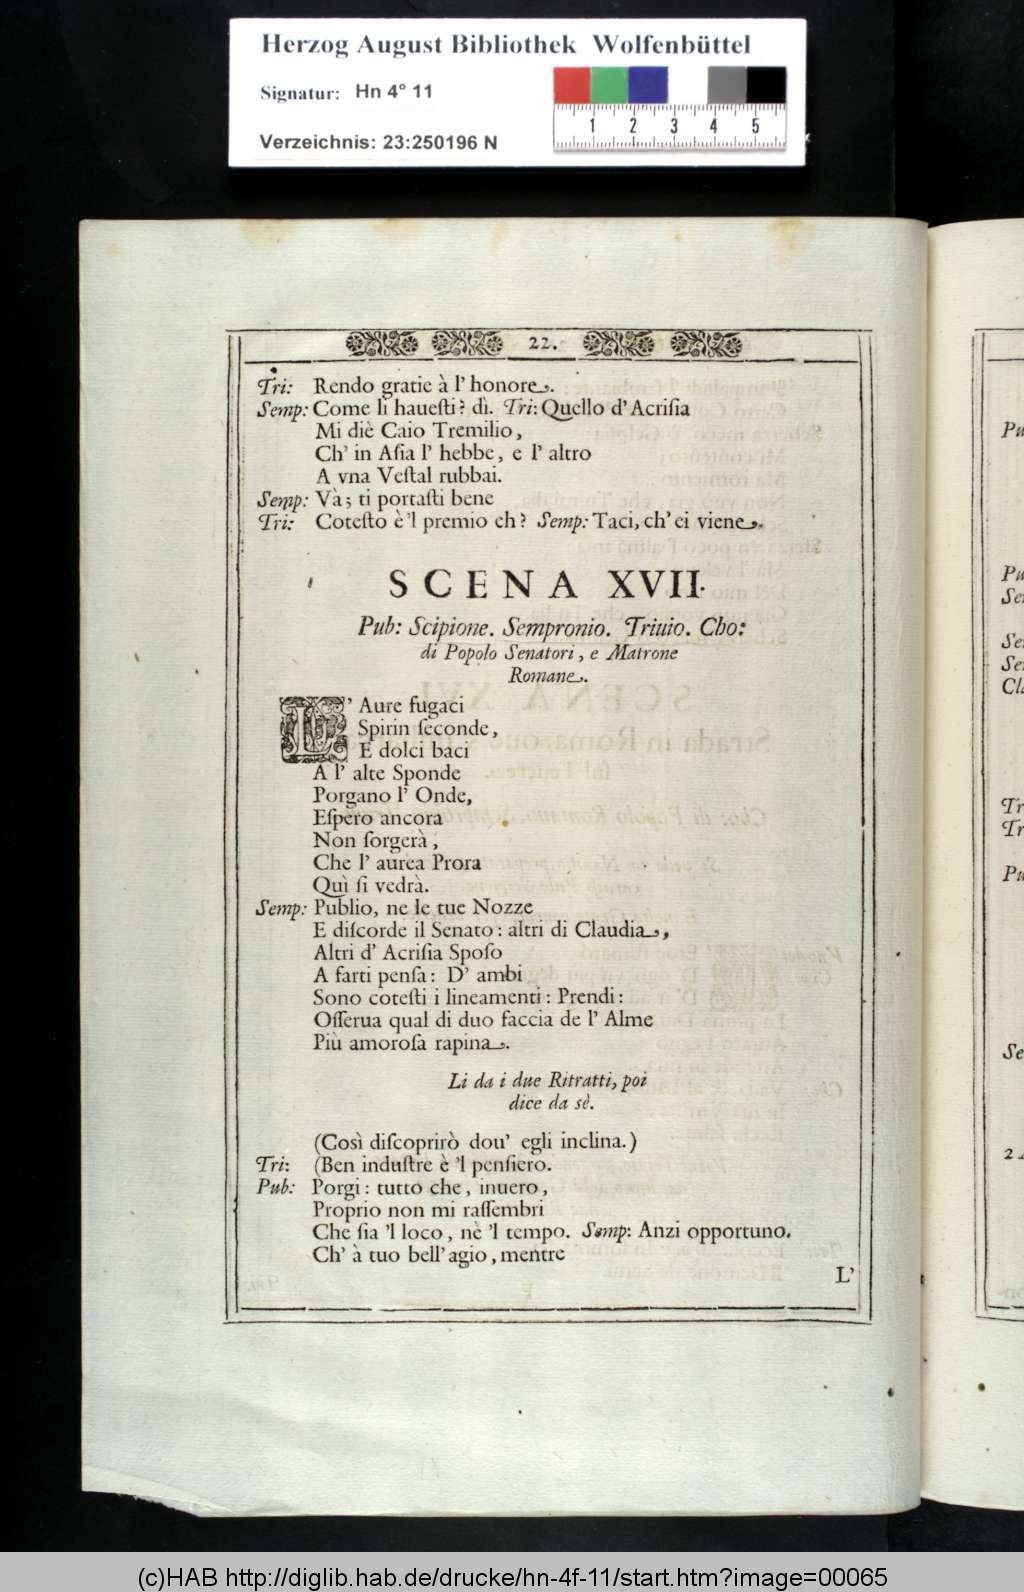 Herzog August Bibliothek Wolfenbüttel
Signatur: Hn 4° 11
Verzeichnis: 23:250196 N
1 2 3 4 5
22.
Tri: Rendo gratie à l' honore.
Semp: Come li haueſti? dì. Tri: Quello d' Acriſia
Mi diè Caio Tremilio,
Ch' in Aſia l' hebbe, e l' altro
A vna Veſtal rubbai.
Semp: Và; ti portaſti bene
Tri: Coteſto è 'l premio eh? Semp: Taci, ch' ei viene.
SCENA XVII.
Pub: Scipione. Sempronio. Triuio. Cho:
di Popolo Senatori, e Matrone
Romane.
L' Aure fugaci
Spirin ſeconde,
E dolci baci
A l' alte Sponde
Porgano l' Onde,
Eſpero ancora
Non ſorgerà,
Che l' aurea Prora
Quì ſi vedrà.
Semp: Publio, ne le tue Nozze
E diſcorde il Senato: altri di Claudia,
Altri d' Acriſia Spoſo
A farti penſa: D' ambi
Sono coteſti i lineamenti: Prendi:
Oſſerua qual di duo faccia de l' Alme
Più amoroſa rapina.
Li da i due Ritratti, poi
dice da sè.
(Così diſcoprirò dou' egli inclina.)
Tri: (Ben induſtre è 'l penſiero.
Pub: Porgi: tutto che, inuero,
Proprio non mi raſſembri
Che ſia 'l loco, nè 'l tempo. Semp: Anzi opportuno.
Ch' à tuo bell' agio, mentre
L'
Pu
Se
Se
Se
Cla
Tr
Tr
Pu
Se
2
(c)HAB http://diglib.hab.de/drucke/hn-4f-11/start.htm?image=00065